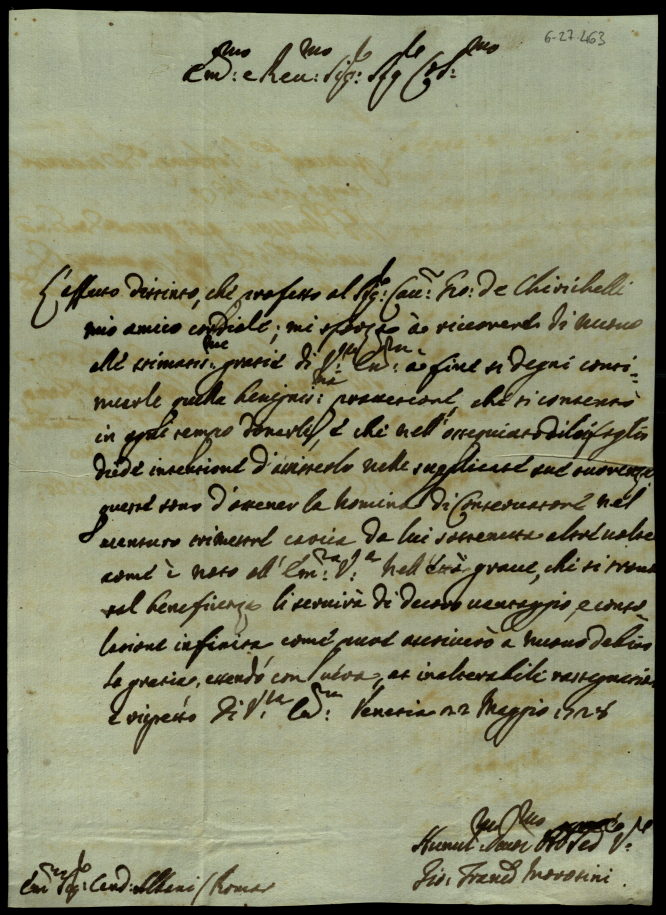 6-27-463
Em:mo e Reu:mo Sig:r Sig:r Col:mo
L'affetto distinto, che professo al Sig:r Cau:r Gio: de Chirichelli
mio amico cordiale; mi sforza à ricorrere di nuouo
alle stimatis:me gratie di V:ra Em:za à fine si degni conti-
nuarle quella benignis:ma protettione, che si consentò
in ogni tempo donarli, è che nell'ossequiato di lei foglio
diede intentione d'assisterlo nelle supplicate sue
queste sono d'ottener la nomina di Conseruatore nel
uenturo trimestre carica da lui sostenuta altre uolte
come è noto all'Em:za V:ra nell'età graue, che si troua
tal beneficenza li seruirà di decoro uantaggio, e conso
latione infinita come pure ascriuerò a nuouo debito
la gratia, essendo con uera, et inalterabile rassegnatione
e rispetto di V:ra Em:za Venetia 22 Maggio 1728
Humil:mo Deuot:mo Ser:
Gio: Franc:o Morosini
Em:mo Sig:r Card: Albani / Roma